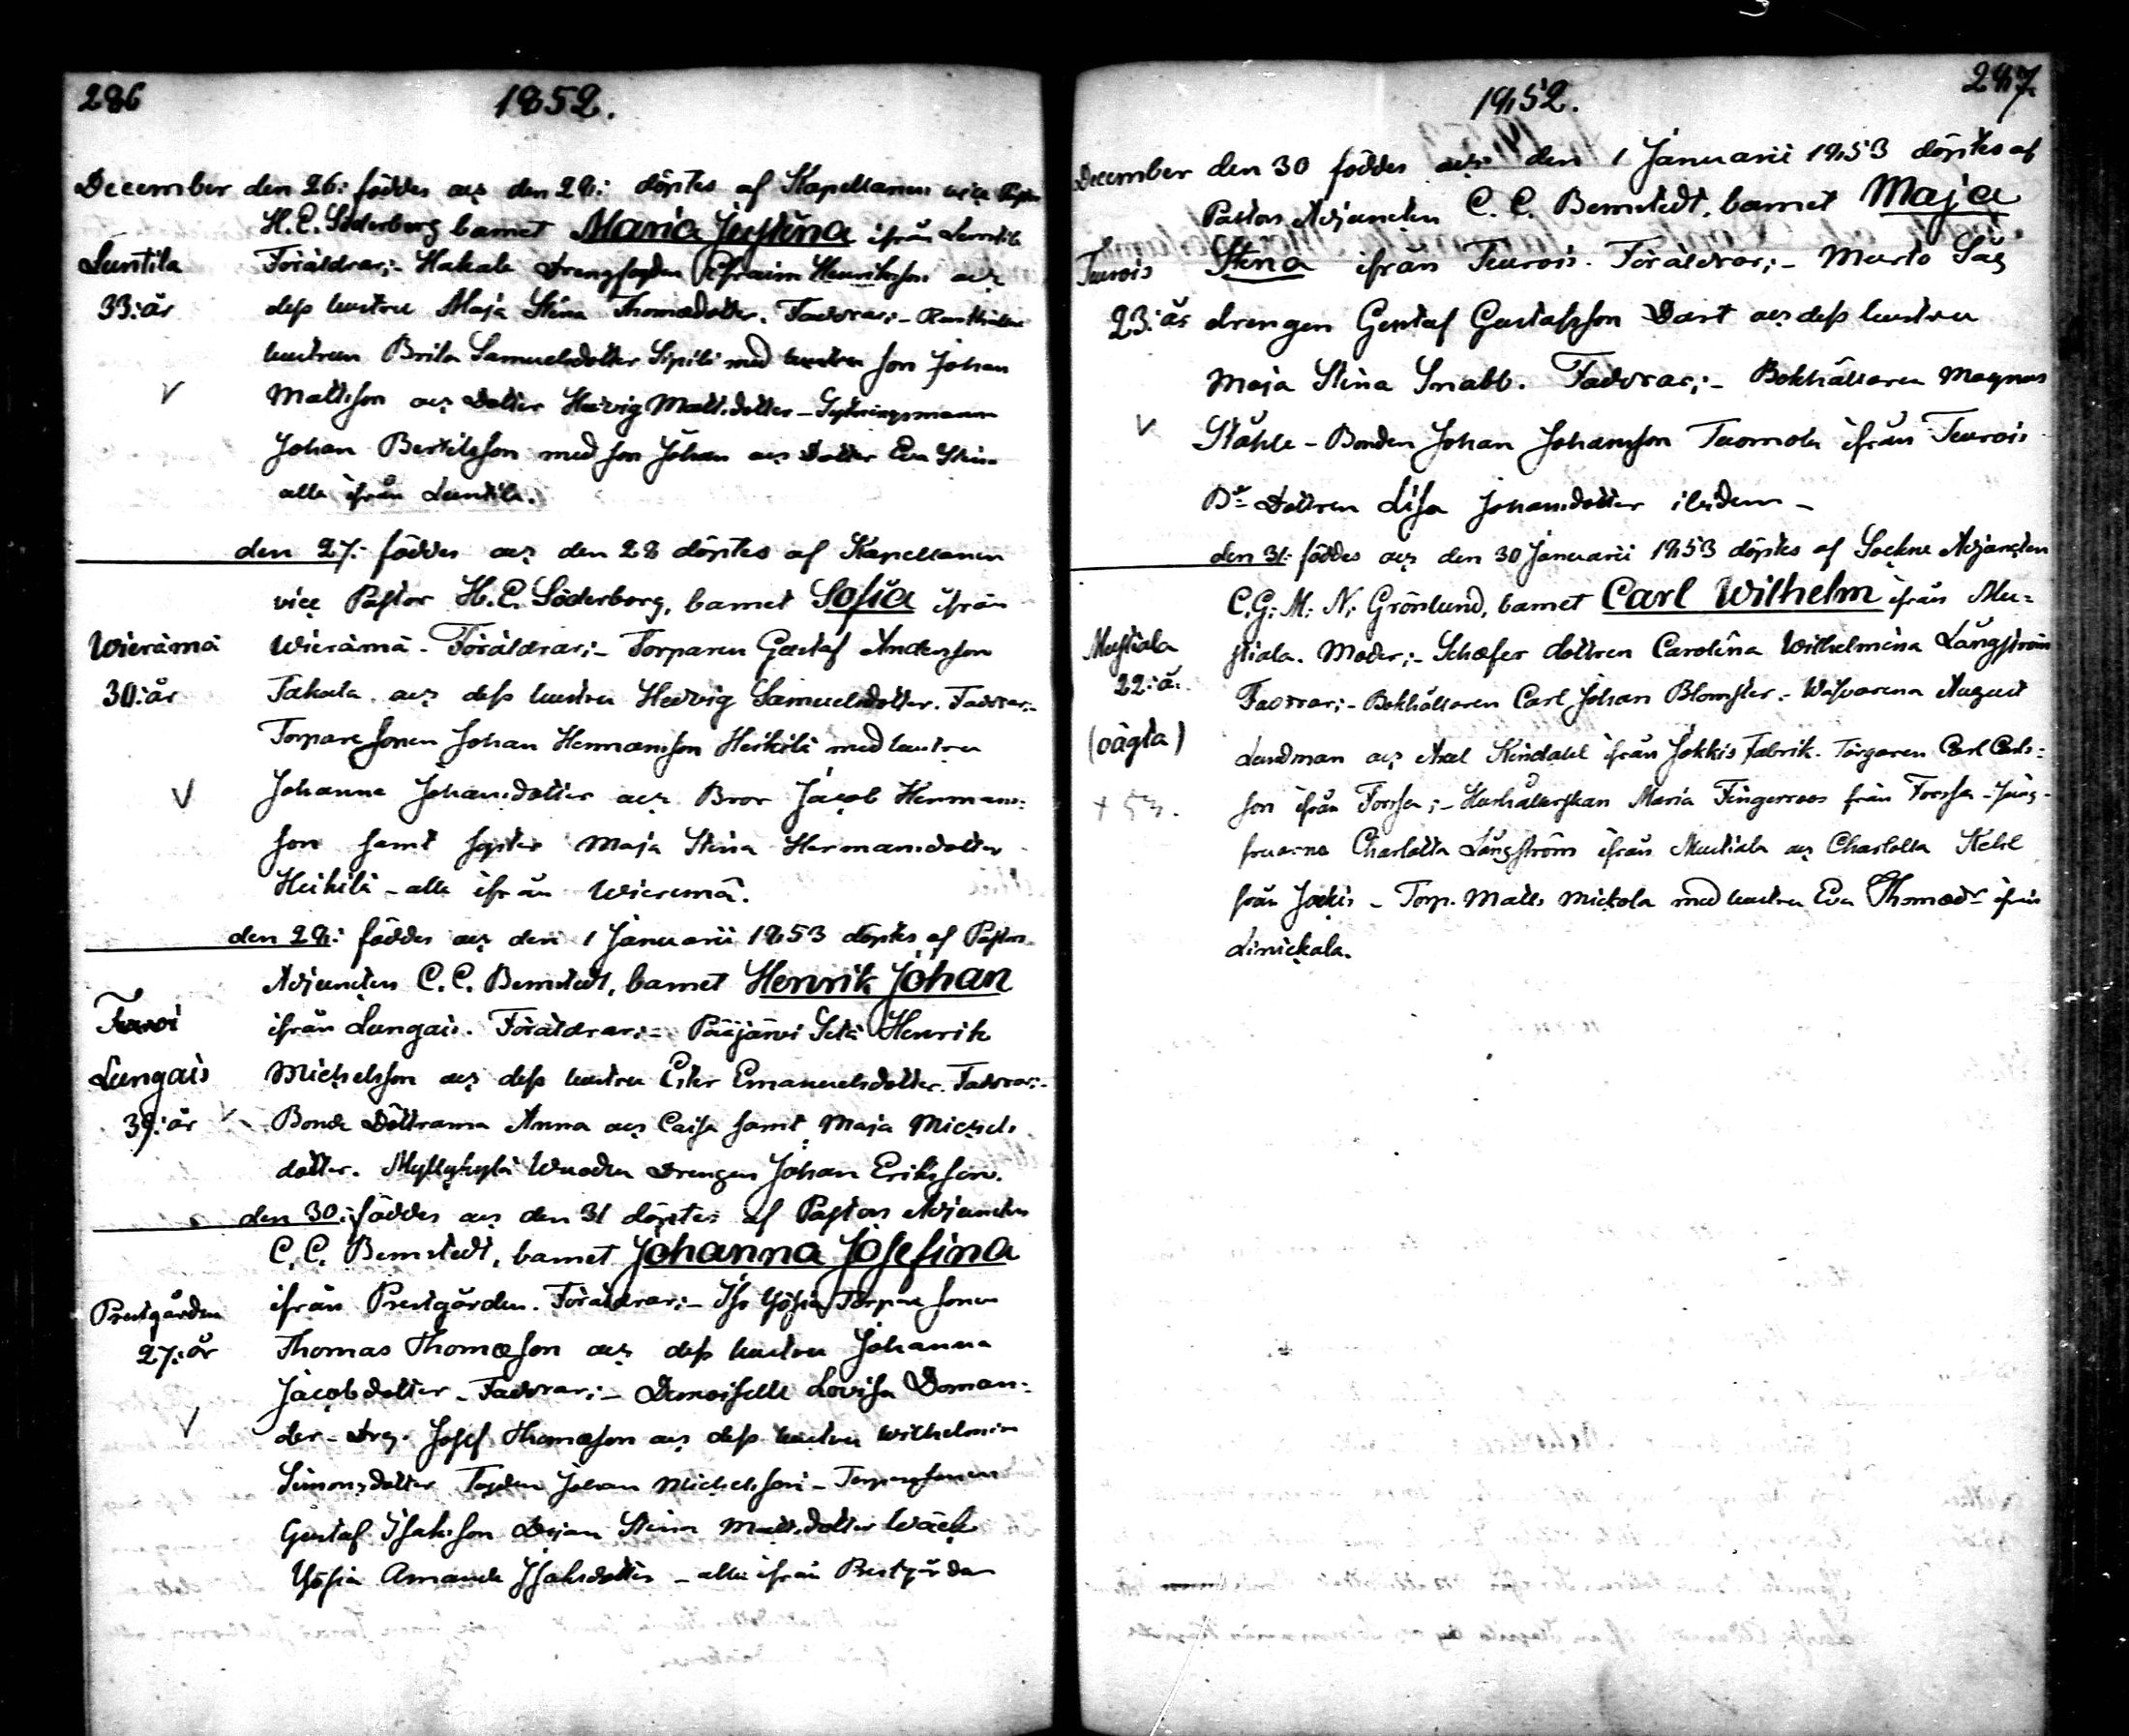 286
1852.
December den 26: föddes och den 28: döptes af Kapellanen vice Pastor
H. E. Söderborg barnet Maria Justina ifrån Luntila
Luntila
33: år
Föräldrar;- Hakala Drengfogden Efraim Henriksson och
dess hustru Maja Stina Thomædotter. Faddrar;-
hustrun Brita Samuelsdotter Sipilä med son Johan
Mattsson och Dotter Hedvig Mattsdotter - Sytningsmannen
Johan Bertilsson med son Johan och Dotter Eva Stina
alla ifrån Luntila.
den 27: föddes och den 28 döptes af Kapellanen
vice Pastor H. E. Söderborg, barnet Sofia ifrån
Wierämä
30: år
Wierämä - Föräldrar;- Torparen Gustaf Andersson
Takala och dess hustru Hedvig Samuelsdotter. Faddrar;-
Torpare sonen Johan Hermansson Heikilä med hustru
Johanna Johansdotter och Bror Jacob Hermans-
son samt syster Maja Stina Hermansdotter
Heikilä - alla ifrån Wieremä.
den 28: föddes och den 1 Januarii 1853 döptes af Pastors
Adjuncten C. C. Bernstedt, barnet Henrik Johan
Lungais
39: år
ifrån Lungais. Föräldrar;- Pääjärvi Henrik
Michelsson och dess hustru Ester Emanuelsdotter. Faddrar;-
Bonde Döttrarna Anna och Caisa samt Maja Michels
dotter. Myllykylä Drengen Johan Eriksson.
den 30: föddes och den 31 döptes af Pastors Adjuncten
C. C. Bernstedt, barnet Johanna Josefina
Prestgården
27: år
ifrån Prestgården. Föräldrar;- Torpare sonen
Thomas Thomæson och dess hustru Johanna
Jacobsdotter - Faddrar;- Demoiselle Lovisa Doman-
der - Dreng. Josef Thomæson och dess hustru Wilhelmina
Simonsdotter Fogden Johan Michelsson - Torparesonen
Gustaf Isaksson Pigan Stina Mattsdotter
Amanda Isaksdotter - alla ifrån Prestgården
287.
1852.
December den 30 föddes och den 1 Januarii 1853 döptes af
Pastors Adjuncten C. C. Bernstedt, barnet Maja
Teurois
23: år
Stina ifrån Teurois. Föräldrar;- Murto Såg
drengen Gustaf Gustafsson Dart och dess hustru
Maja Stina Snabb. Faddrar;- Bokhållaren Magnus
Ståhle - Bonden Johan Johansson Tuomola ifrån Teurois
Bde Dottren Lisa Johansdotter ibidem -
den 31: föddes och den 30 Januarii 1853 döptes af Sockne Adjuncten
C. G. M. N. Grönlund, barnet Carl Wilhelm ifrån Mu-
Mustiala
22: å.
(oägta)
+ 53.
stiala. Moder;- Schæfer dottren Carolina Wilhelmina Långström
Faddrar;- Bokhållaren Carl Johan Blomster - Wäfvarena August
Landman och Axel Kindahl ifrån Jokkis Fabrik. Färgaren Carl Carls-
son ifrån Forssa;- Hushållerskan Maria Fingerroos från Forssa - Jung-
fruarna Charlotta Långström ifrån Mustiala och Charlotta Kehl
från Jockis - Torp. Matts Mickola med hustru Eva Thomædr ifrån
Linickala.